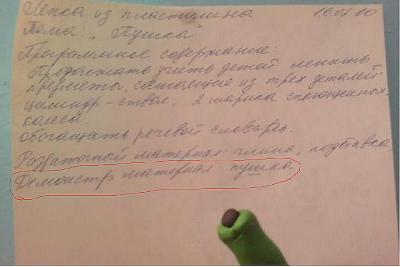 Лепка из пластилина 16.07.10
Тема: "Пушка"
Программное содержание:
Продолжать учить детей лепить
предметы, состоящие из трех деталей:
цилиндр - ствол, 2 шарика сплющенных
колеса.
обогащать речевой словарь.
Раздаточный материал глина, подставка
Демонстр. материал пушка